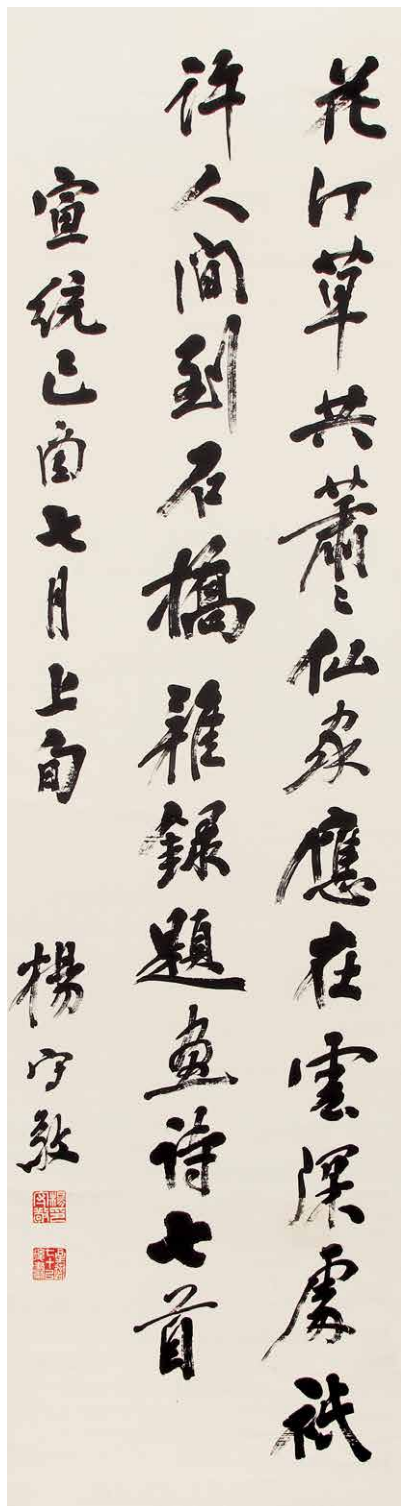 花汀草共蕭〻仙家應在雲深處祇
許人間到石橋雜錄題畫詩七首
宣統己酉七月上旬 楊守敬
楊守敬印